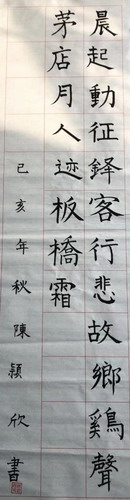 晨起動征鐸客行悲故鄉鷄聲
茅店月人迹板橋霜
己亥年秋陳穎欣書